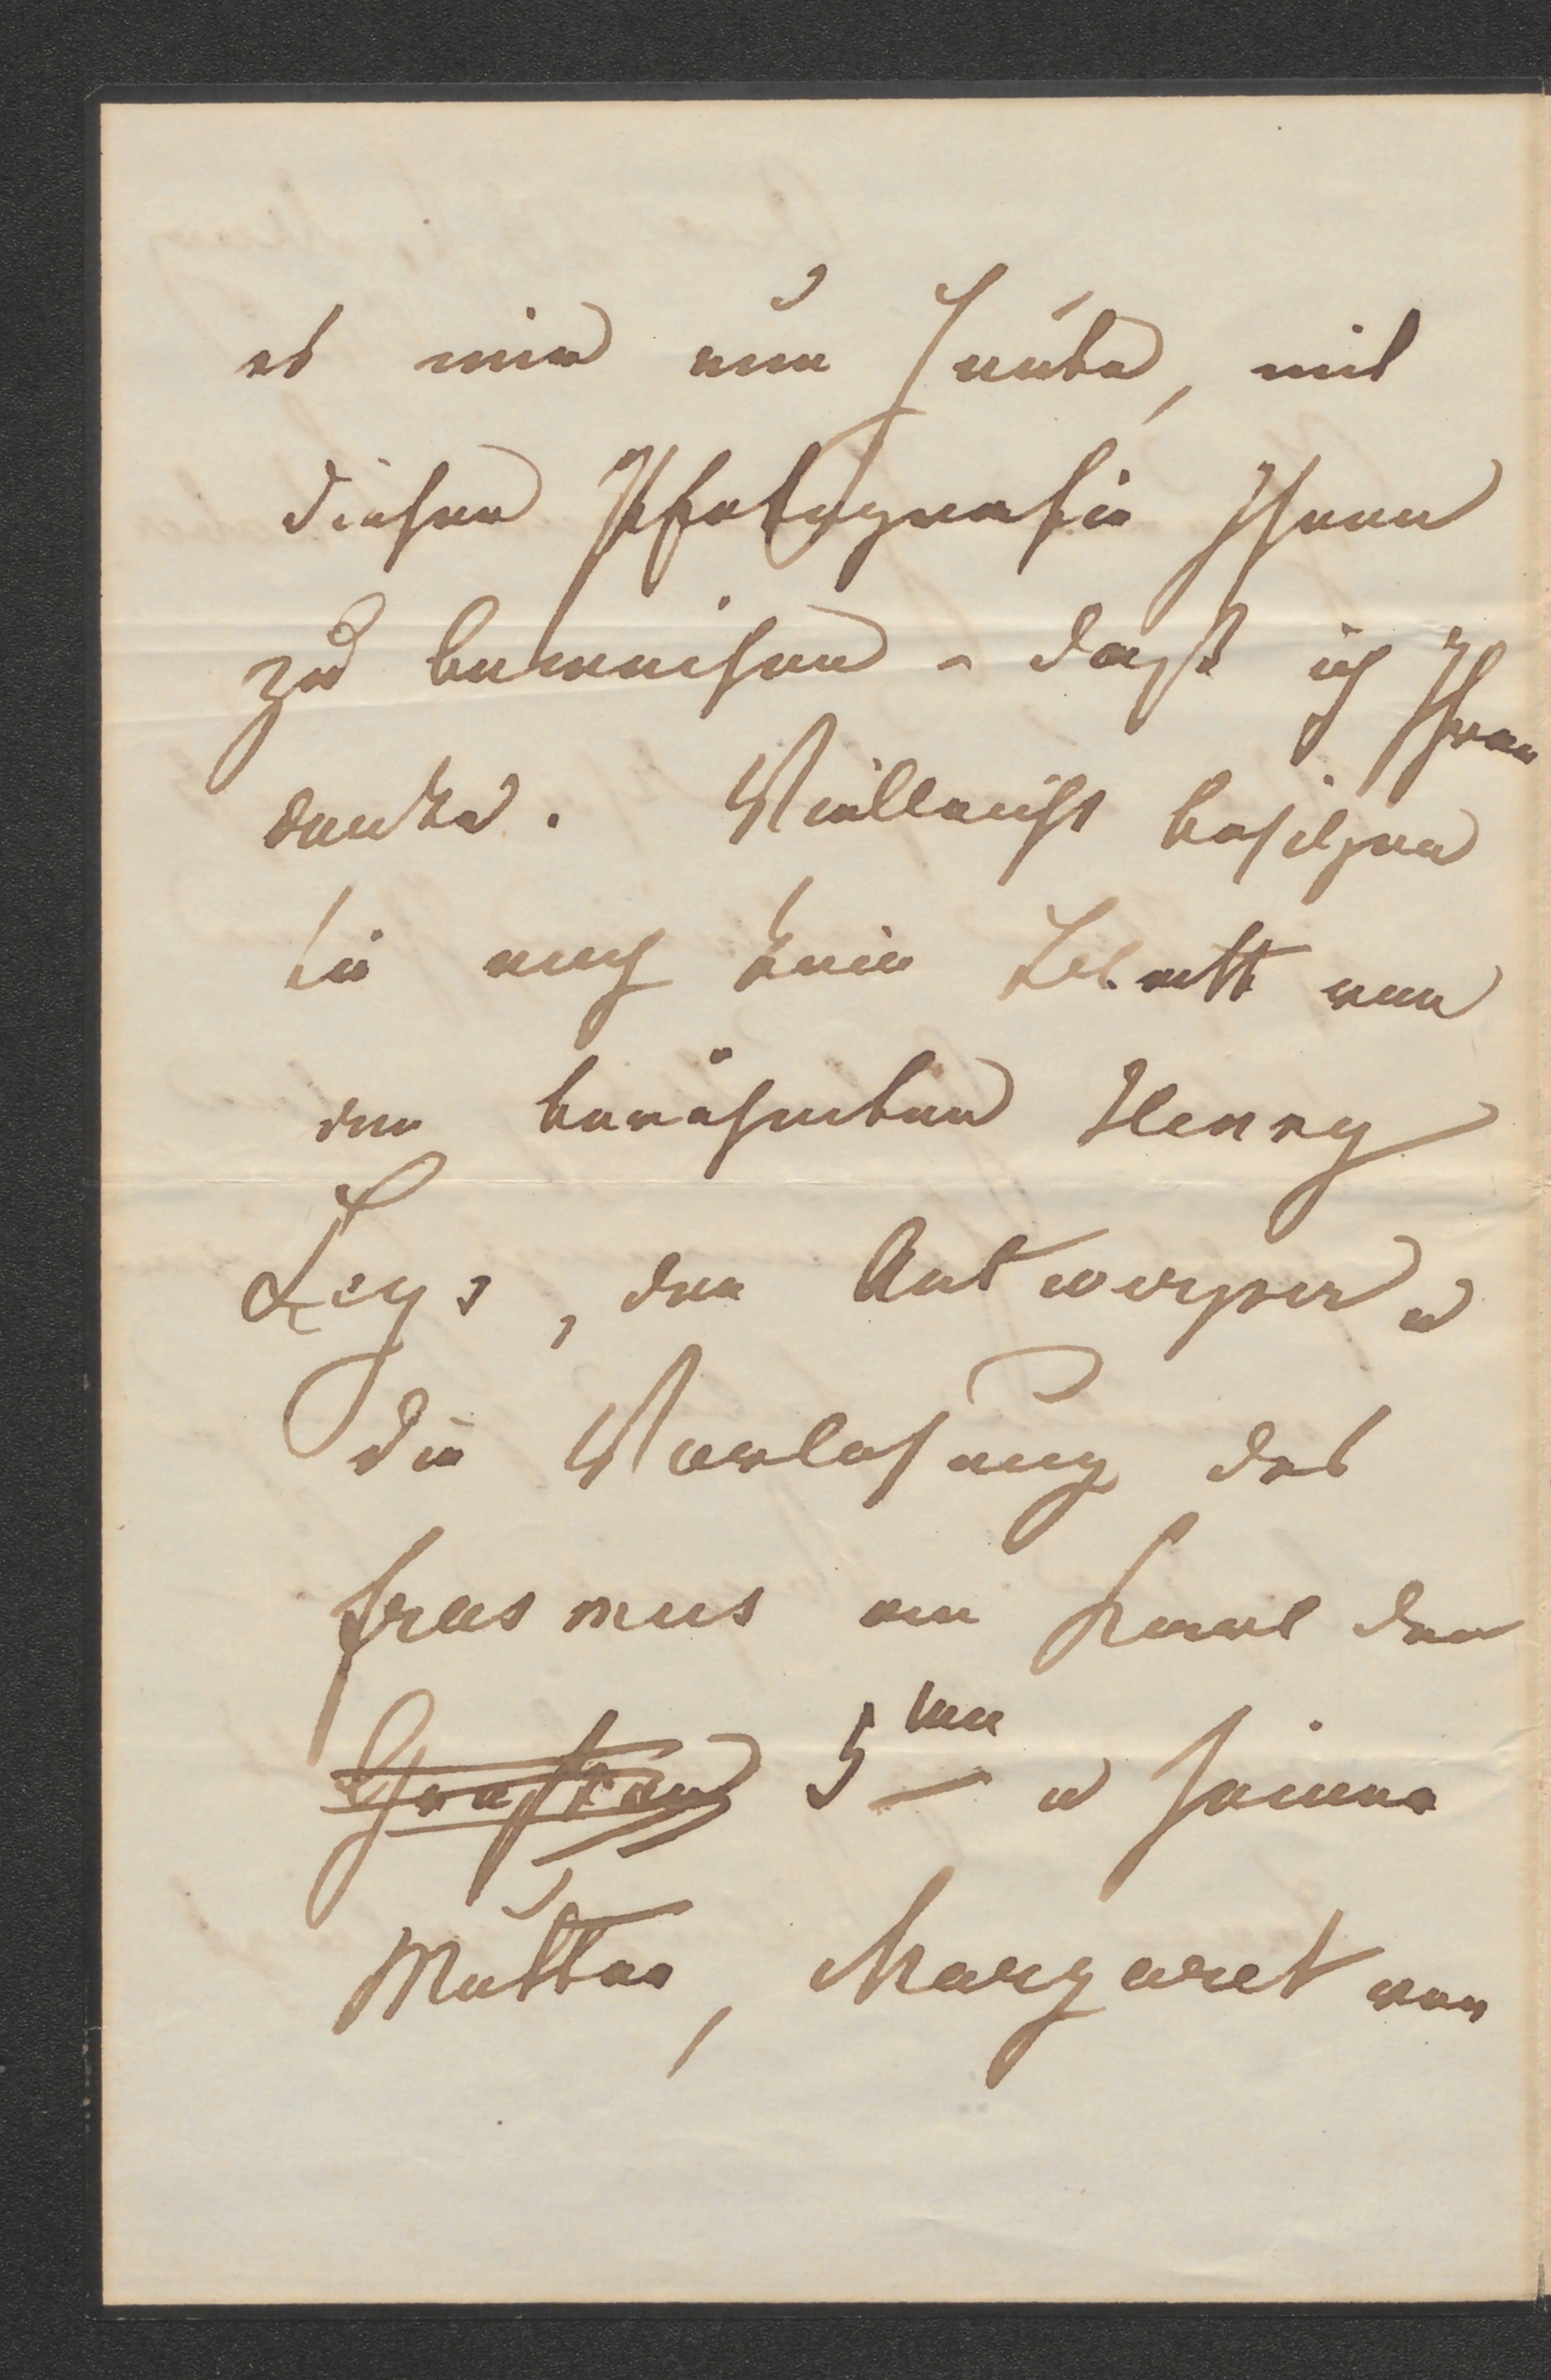 es mir nun heute, mit
diesen Pfotografie Ihnen
zu beweisen – daß ich Ihnen
danke. Vielleicht besitzen
Sie noch kein Blatt von
den berühmten Henry
Leys, den Antwerper u
die Vorlesung des
Erasmus an Karl den
Großen 5ten u seiner
Mutter, Margaret von